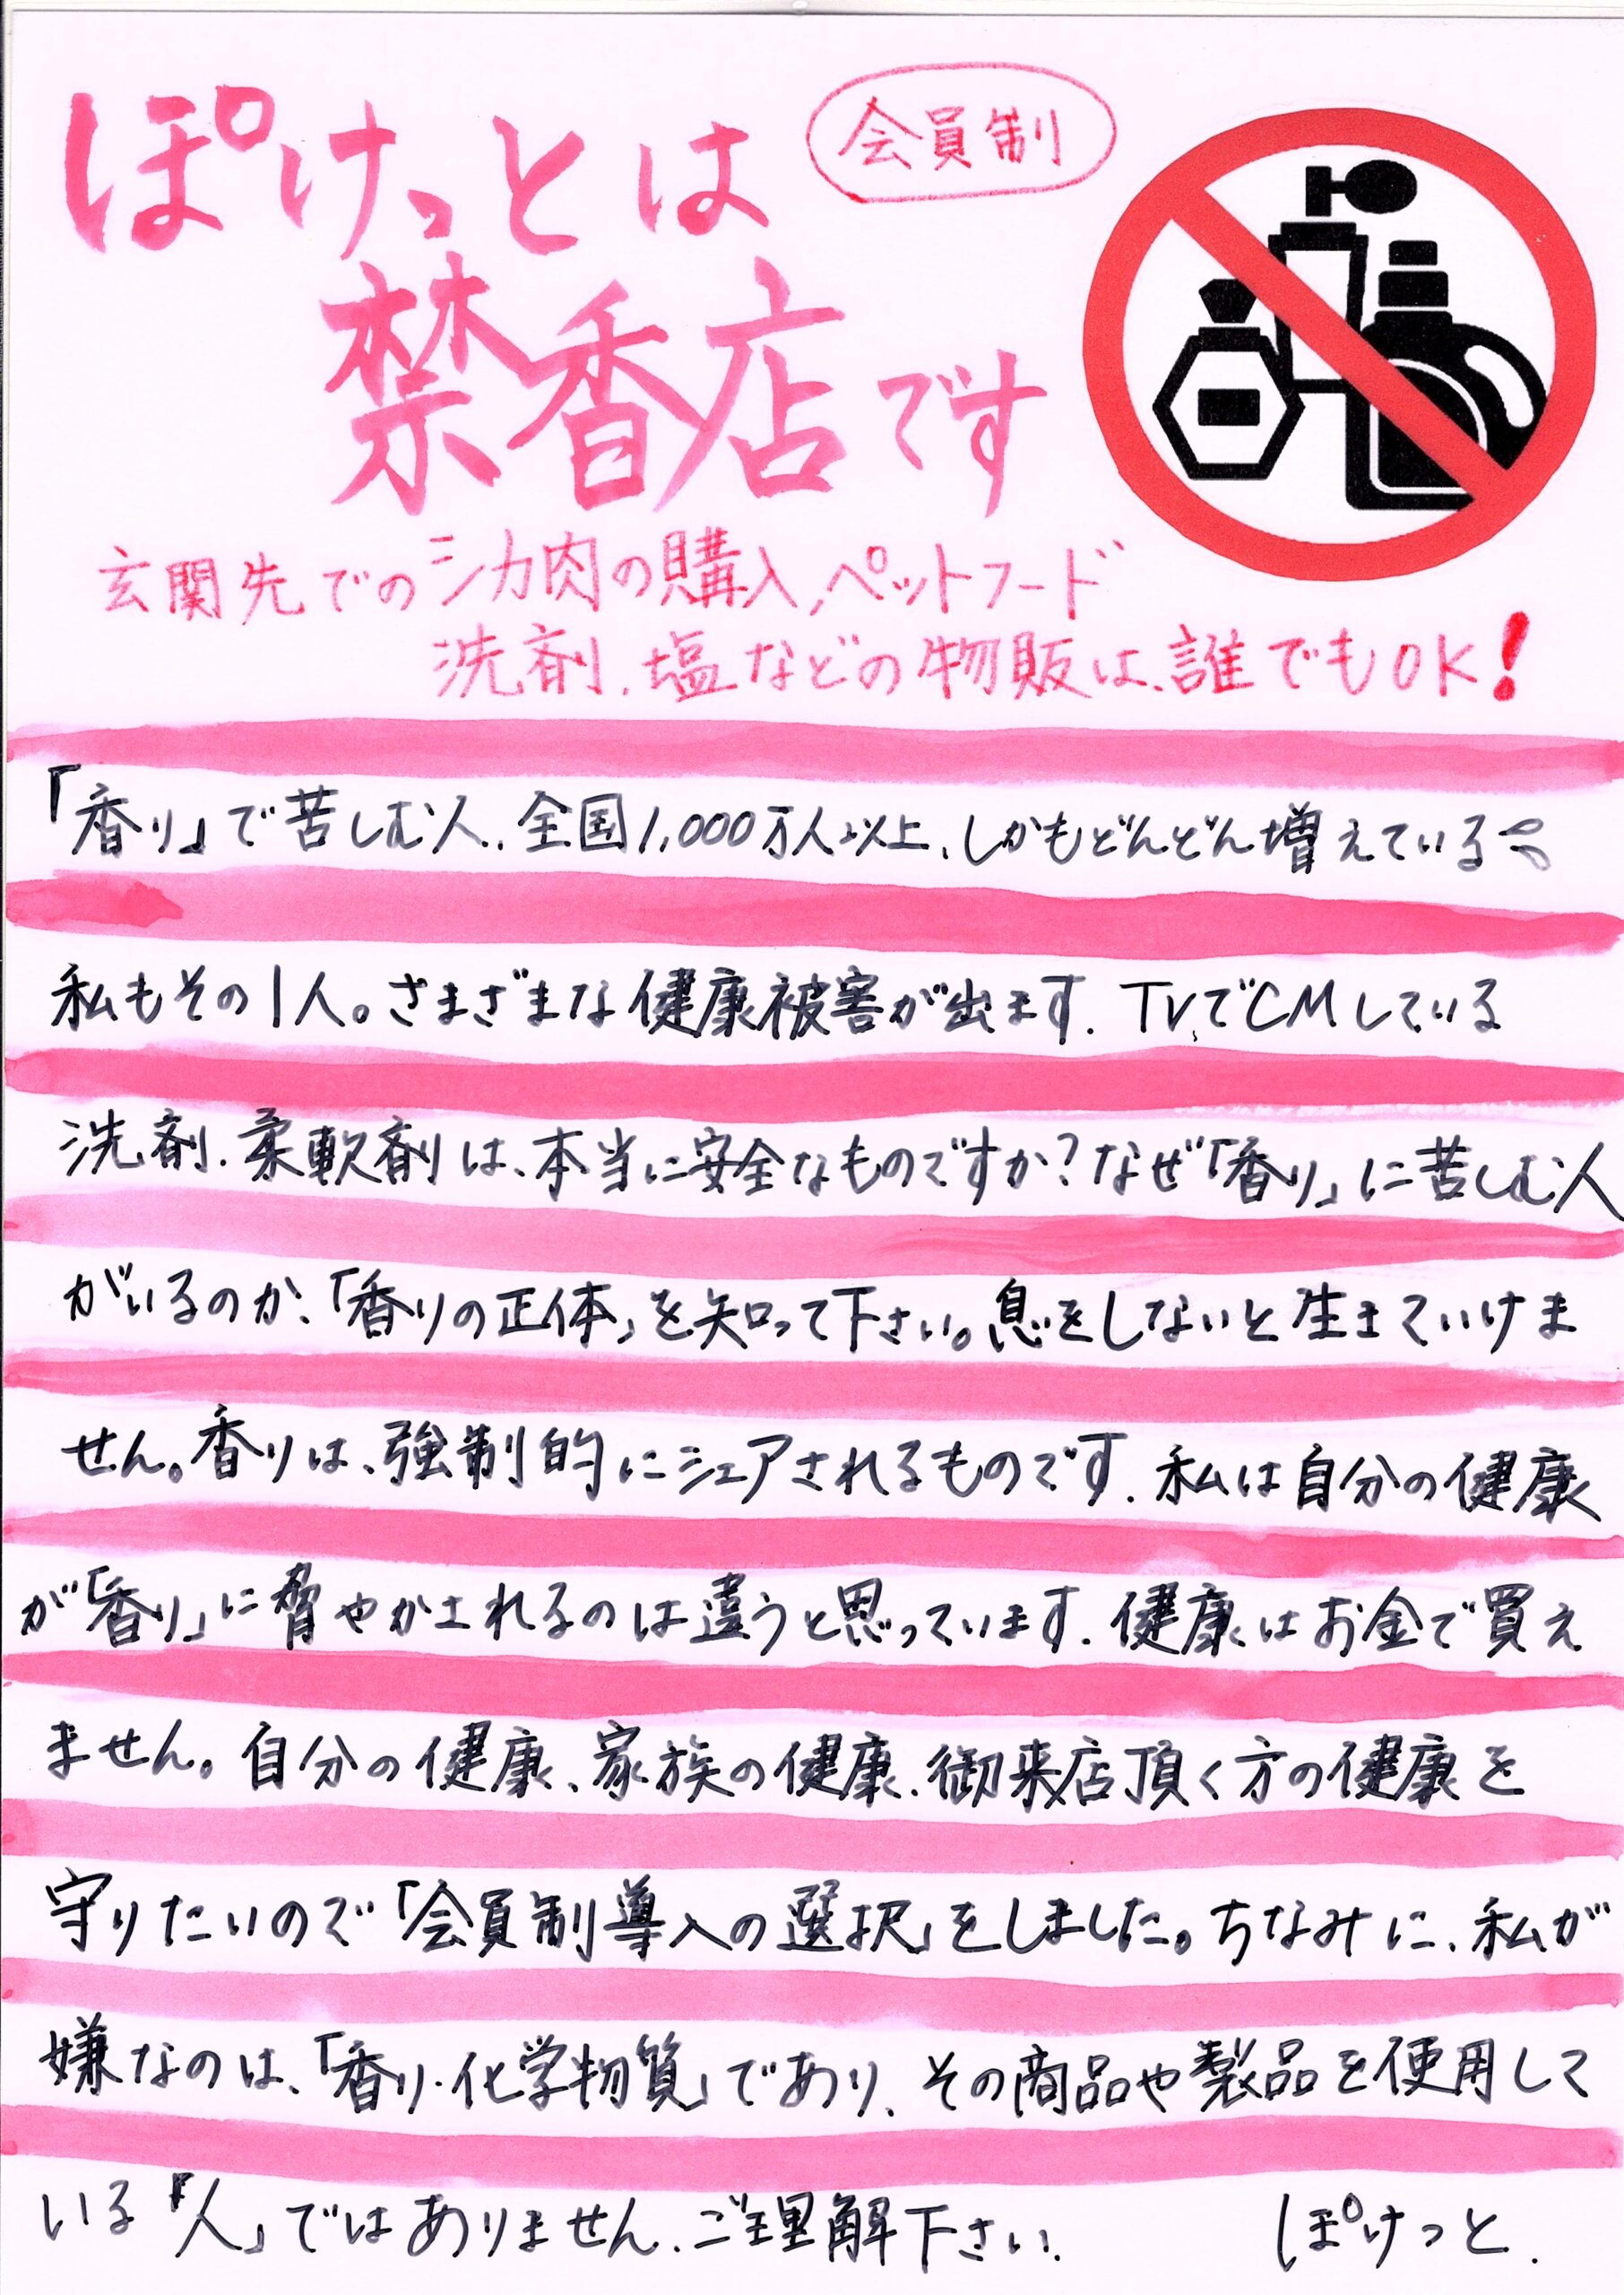 ぽけっとは
会員制
禁香店です
玄関先でのシカ肉の購入、ペットフード
洗剤、塩などの物販は、誰でもOK!
「香り」で苦しむ人、全国1,000万人以上、しかもどんどん増えている
私もその1人。さまざまな健康被害が出ます。TVでCMしている
洗剤、柔軟剤は、本当に安全なものですか?なぜ「香り」に苦しむ人
がいるのか、「香りの正体」を知って下さい。息をしないと生きていけま
せん。香りは、強制的にシェアされるものです。私は自分の健康
が「香り」に脅やかされるのは違うと思っています。健康はお金で買え
ません。自分の健康、家族の健康、御来店頂く方の健康を
守りたいので「会員制導入の選択」をしました。ちなみに、私が
嫌なのは、「香り・化学物質」であり、その商品や製品を使用して
いる「人」ではありません。ご理解下さい。
ぽけっと.